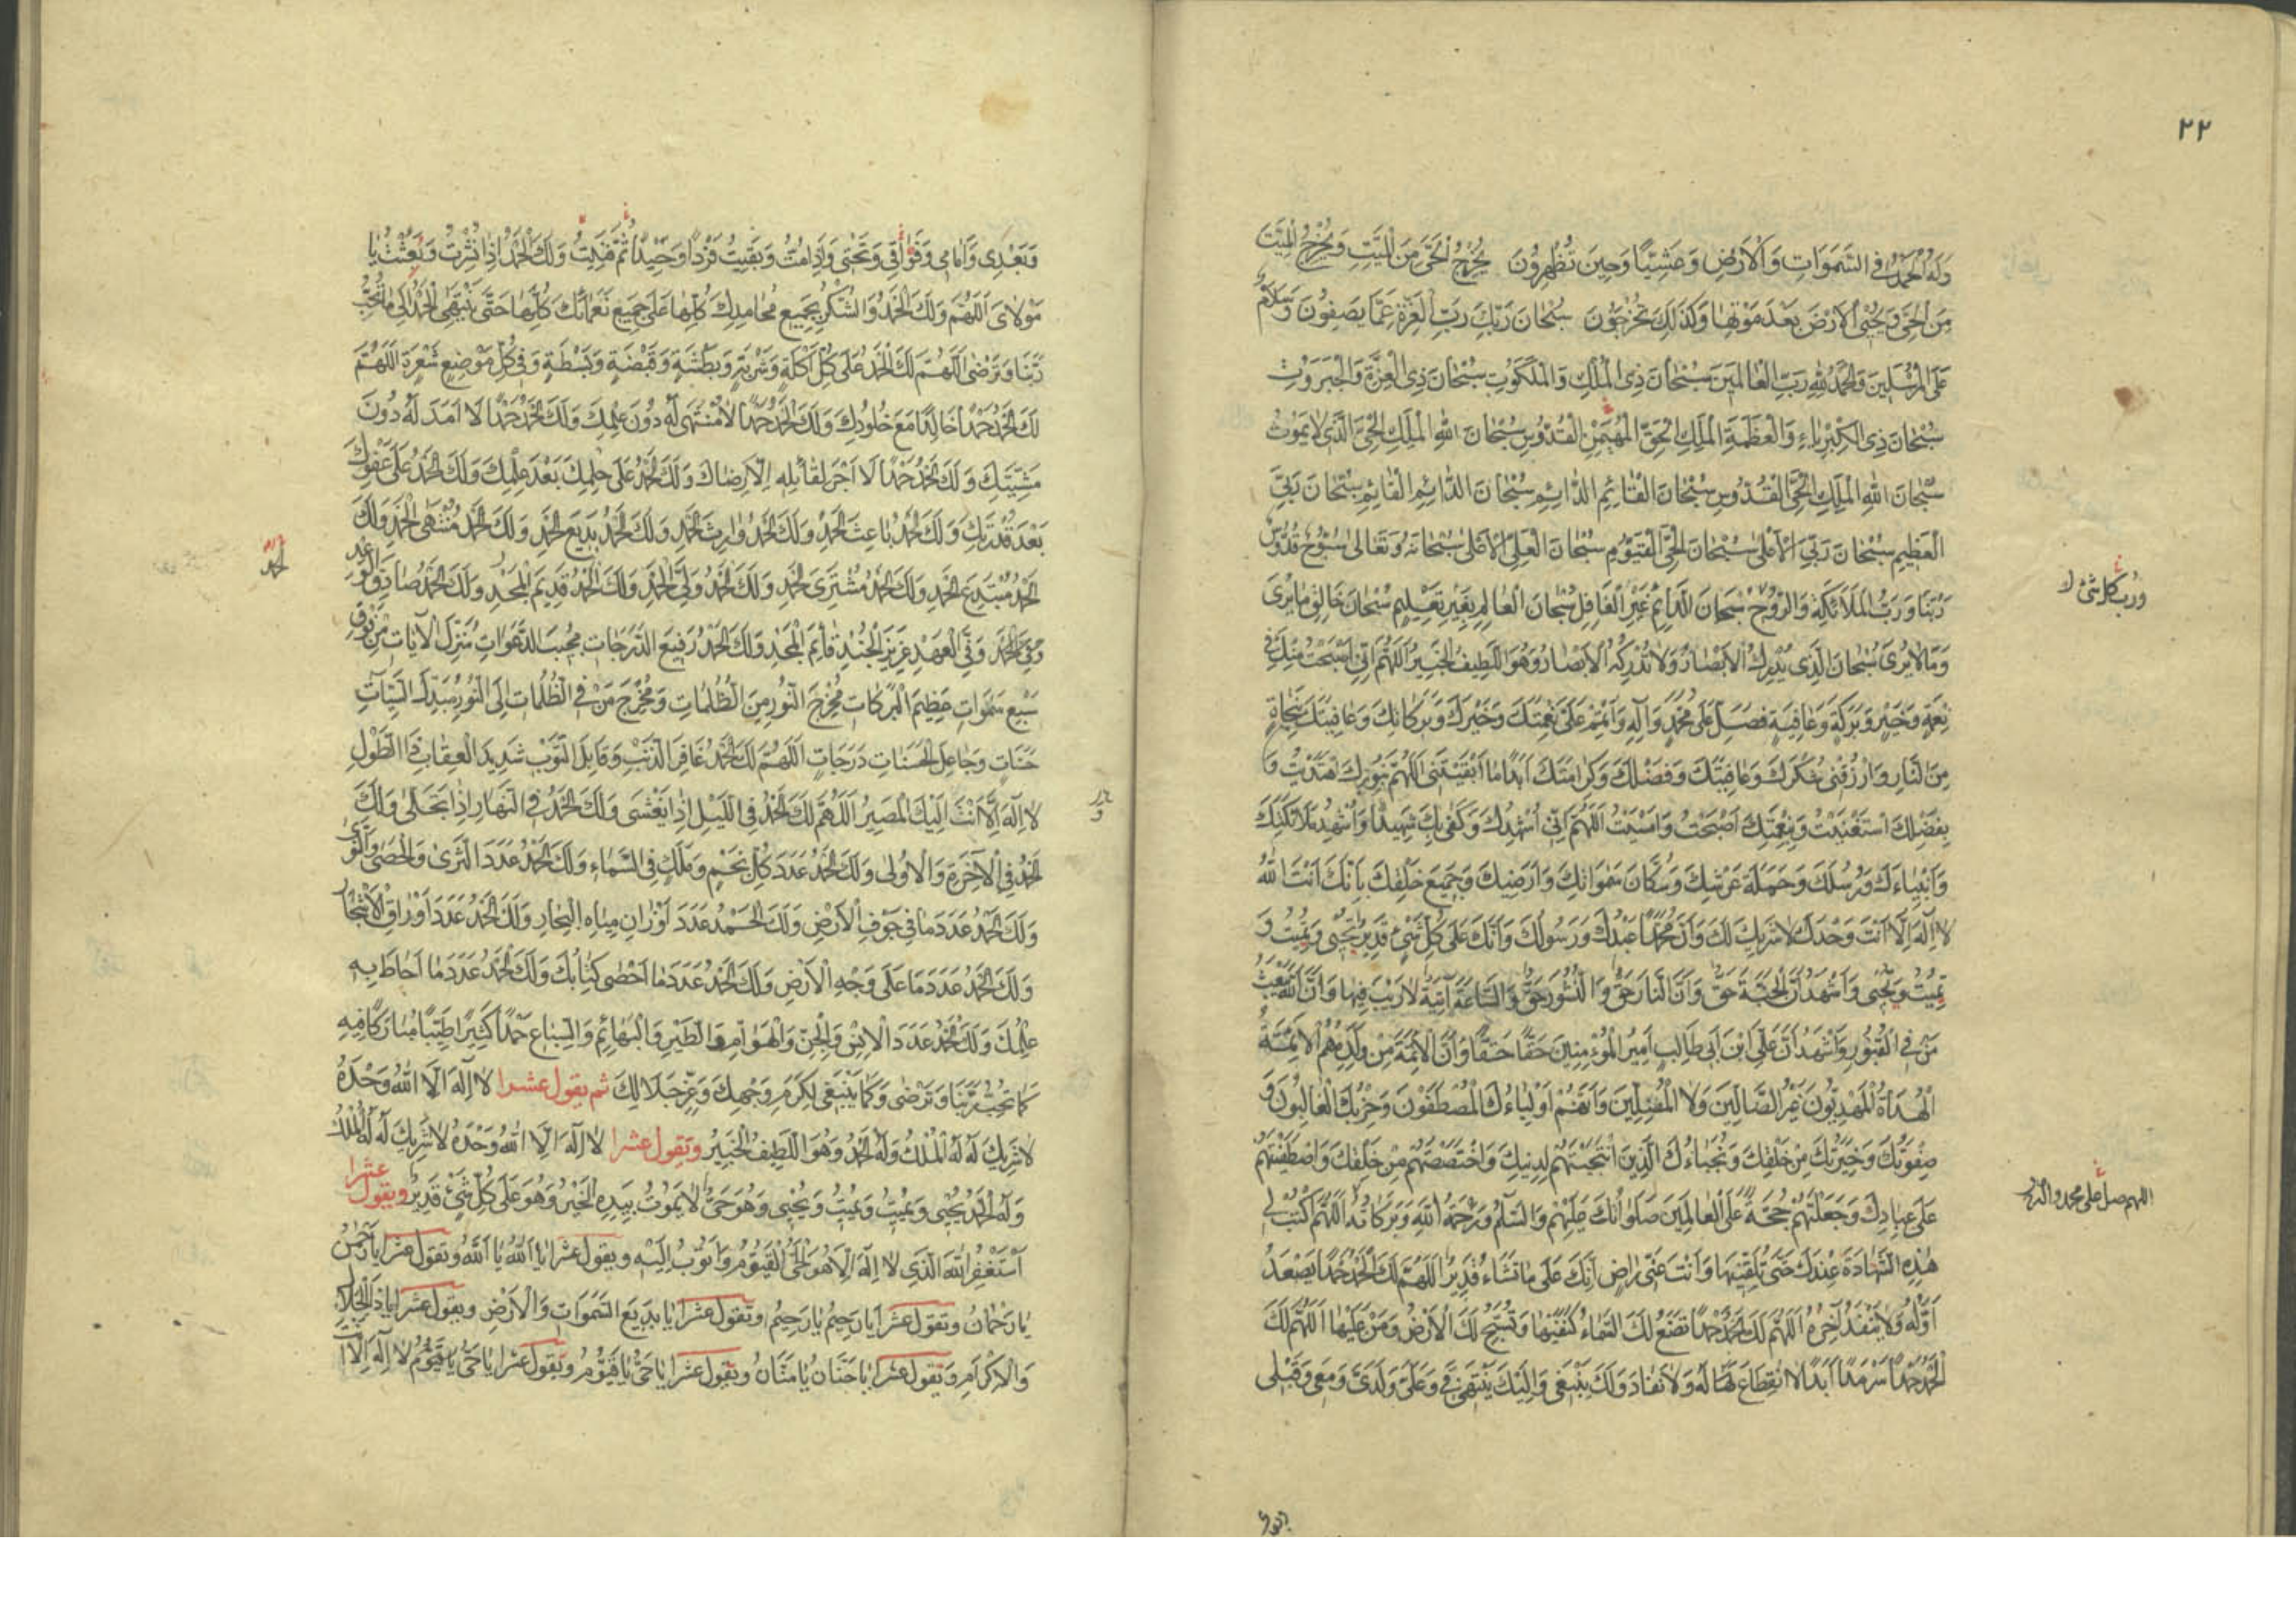 ٢٢
وَلَهُ الْحَمْدُ فِي السَّمَوَاتِ وَالْاَرْضِ وَعَشِيًّا وَحِينَ تُظْهِرُونَ يُخْرِجُ الْحَيَّ مِنَ الْمَيِّتِ وَيُخْرِجُ الْمَيِّتَ
مِنَ الْحَيِّ وَيُحْيِي الْاَرْضَ بَعْدَ مَوْتِهَا وَكَذَلِكَ تُخْرَجُونَ سُبْحَانَ رَبِّكَ رَبِّ الْعِزَّةِ عَمَّا يَصِفُونَ وَسَلَامٌ
عَلَى الْمُرْسَلِينَ وَالْحَمْدُ لِلّٰهِ رَبِّ الْعَالَمِينَ سُبْحَانَ ذِي الْمُلْكِ وَالْمَلَكُوتِ سُبْحَانَ ذِي الْعِزَّةِ وَالْجَبَرُوتِ
سُبْحَانَ ذِي الْكِبْرِيَاءِ وَالْعَظَمَةِ الْمَلِكِ الْحَقِّ الْمُهَيْمِنِ الْقُدُّوسِ سُبْحَانَ اللهِ الْمَلِكِ الْحَيِّ الَّذِي لَا يَمُوتُ
سُبْحَانَ اللهِ الْمَلِكِ الْحَيِّ الْقُدُّوسِ سُبْحَانَ الْقَائِمِ الدَّائِمِ سُبْحَانَ الدَّائِمِ الْقَائِمِ سُبْحَانَ رَبِّيَ
الْعَظِيمِ سُبْحَانَ رَبِّيَ الْاَعْلَى سُبْحَانَ الْحَيِّ الْقَيُّومِ سُبْحَانَ الْعَلِيِّ الْاَعْلَى سُبْحَانَهُ وَتَعَالَى سُبُّوحٌ قُدُّوسٌ
رَبُّنَا وَرَبُّ الْمَلَائِكَةِ وَالرُّوحِ سُبْحَانَ الدَّائِمِ غَيْرِ الْغَافِلِ سُبْحَانَ الْعَالِمِ بِغَيْرِ تَعْلِيمٍ سُبْحَانَ خَالِقِ مَا يُرَى
وَمَا لَا يُرَى سُبْحَانَ الَّذِي يُدْرِكُ الْاَبْصَارَ وَلَا تُدْرِكُهُ الْاَبْصَارُ وَهُوَ اللَّطِيفُ الْخَبِيرُ اَللّٰهُمَّ اِنِّي اَصْبَحْتُ مِنْكَ فِي
نِعْمَةٍ وَخَيْرٍ وَبَرَكَةٍ وَعَافِيَةٍ فَصَلِّ عَلَى مُحَمَّدٍ وَآلِهِ وَاَتْمِمْ عَلَيَّ نِعْمَتَكَ وَخَيْرَكَ وَبَرَكَاتِكَ وَعَافِيَتَكَ بِنَجَاةٍ
مِنَ النَّارِ وَارْزُقْنِي شُكْرَكَ وَعَافِيَتَكَ وَفَضْلَكَ وَكَرَامَتَكَ اَبَدًا مَا اَبْقَيْتَنِي اَللّٰهُمَّ بِنُورِكَ اهْتَدَيْتُ وَ
بِفَضْلِكَ اسْتَغْنَيْتُ وَبِنِعْمَتِكَ اَصْبَحْتُ وَاَمْسَيْتُ اَللّٰهُمَّ اِنِّي اُشْهِدُكَ وَكَفَى بِكَ شَهِيدًا وَاُشْهِدُ مَلَائِكَتَكَ
وَاَنْبِيَاءَكَ وَرُسُلَكَ وَحَمَلَةَ عَرْشِكَ وَسُكَّانَ سَمَوَاتِكَ وَاَرَضِيكَ وَجَمِيعَ خَلْقِكَ بِاَنَّكَ اَنْتَ اللهُ
لَا اِلَهَ اِلَّا اَنْتَ وَحْدَكَ لَا شَرِيكَ لَكَ وَاَنَّ مُحَمَّدًا عَبْدُكَ وَرَسُولُكَ وَاَنَّكَ عَلَى كُلِّ شَيْءٍ قَدِيرٌ تُحْيِي وَتُمِيتُ وَ
تُمِيتُ وَتُحْيِي وَاَشْهَدُ اَنَّ الْجَنَّةَ حَقٌّ وَاَنَّ النَّارَ حَقٌّ وَالنُّشُورَ حَقٌّ وَالسَّاعَةَ آتِيَةٌ لَا رَيْبَ فِيهَا وَاَنَّ اللهَ يَبْعَثُ
مَنْ فِي الْقُبُورِ وَاَشْهَدُ اَنَّ عَلِيَّ ابْنَ اَبِي طَالِبٍ اَمِيرُ الْمُؤْمِنِينَ حَقًّا حَقًّا وَاَنَّ الْاَئِمَّةَ مِنْ وُلْدِهِ هُمُ الْاَئِمَّةُ
الْهُدَاةُ الْمَهْدِيُّونَ غَيْرُ الضَّالِّينَ وَلَا الْمُضِلِّينَ وَاَنَّهُمْ اَوْلِيَاءُكَ الْمُصْطَفَوْنَ وَحِزْبُكَ الْغَالِبُونَ وَ
صِفْوَتُكَ وَخِيَرَتُكَ مِنْ خَلْقِكَ وَنُجَبَاءُكَ الَّذِينَ انْتَجَبْتَهُمْ لِدِينِكَ وَاخْتَصَصْتَهُمْ مِنْ خَلْقِكَ وَاصْطَفَيْتَهُمْ
عَلَى عِبَادِكَ وَجَعَلْتَهُمْ حُجَّةً عَلَى الْعَالَمِينَ صَلَوَاتُكَ عَلَيْهِمْ وَالسَّلَامُ وَرَحْمَةُ اللهِ وَبَرَكَاتُهُ اَللّٰهُمَّ اكْتُبْ لِي
هٰذِهِ الشَّهَادَةَ عِنْدَكَ حَتَّى تُلَقِّيَنِيهَا وَاَنْتَ عَنِّي رَاضٍ اِنَّكَ عَلَى مَا تَشَاءُ قَدِيرٌ اَللّٰهُمَّ لَكَ الْحَمْدُ حَمْدًا يَصْعَدُ
اَوَّلُهُ وَلَا يَنْفَدُ آخِرُهُ اَللّٰهُمَّ لَكَ الْحَمْدُ حَمْدًا تَضَعُ لَكَ السَّمَاءُ كَنَفَيْهَا وَتُسَبِّحُ لَكَ الْاَرْضُ وَمَنْ عَلَيْهَا اَللّٰهُمَّ لَكَ
الْحَمْدُ حَمْدًا سَرْمَدًا اَبَدًا لَا انْقِطَاعَ لَهُ وَلَا نَفَادَ وَلَكَ يَنْبَغِي وَاِلَيْكَ يَنْتَهِي فِيَّ وَعَلَيَّ وَلَدَيَّ وَمَعِي وَقَبْلِي
ورب كل شئ
اللهم صل على محمد و آل
وَبَعْدِي وَاَمَامِي وَفَوْقِي وَتَحْتِي وَاِذَا مُتُّ وَبَقِيتُ فَرْدًا وَحِيدًا ثُمَّ فَنِيتُ وَلَكَ الْحَمْدُ اِذَا نُشِرْتُ وَبُعِثْتُ يَا
مَوْلَايَ اَللّٰهُمَّ وَلَكَ الْحَمْدُ وَالشُّكْرُ بِجَمِيعِ مَحَامِدِكَ كُلِّهَا عَلَى جَمِيعِ نَعْمَائِكَ كُلِّهَا حَتَّى يَنْتَهِيَ الْحَمْدُ اِلَى مَا تُحِبُّ
رَبَّنَا وَتَرْضَى اَللّٰهُمَّ لَكَ الْحَمْدُ عَلَى كُلِّ اَكْلَةٍ وَشَرْبَةٍ وَبَطْشَةٍ وَقَبْضَةٍ وَبَسْطَةٍ وَفِي كُلِّ مَوْضِعِ شَعْرَةٍ اَللّٰهُمَّ
لَكَ الْحَمْدُ حَمْدًا خَالِدًا مَعَ خُلُودِكَ وَلَكَ الْحَمْدُ حَمْدًا لَا مُنْتَهَى لَهُ دُونَ عِلْمِكَ وَلَكَ الْحَمْدُ حَمْدًا لَا اَمَدَ لَهُ دُونَ
مَشِيَّتِكَ وَلَكَ الْحَمْدُ حَمْدًا لَا اَجْرَ لِقَائِلِهِ اِلَّا رِضَاكَ وَلَكَ الْحَمْدُ عَلَى حِلْمِكَ بَعْدَ عِلْمِكَ وَلَكَ الْحَمْدُ عَلَى عَفْوِكَ
بَعْدَ قُدْرَتِكَ وَلَكَ الْحَمْدُ بَاعِثَ الْحَمْدِ وَلَكَ الْحَمْدُ وَارِثَ الْحَمْدِ وَلَكَ الْحَمْدُ بَدِيعَ الْحَمْدِ وَلَكَ الْحَمْدُ مُنْتَهَى الْحَمْدِ وَلَكَ
الْحَمْدُ مُبْتَدِعَ الْحَمْدِ وَلَكَ الْحَمْدُ مُشْتَرِيَ الْحَمْدِ وَلَكَ الْحَمْدُ وَلِيَّ الْحَمْدِ وَلَكَ الْحَمْدُ قَدِيمَ الْحَمْدِ وَلَكَ الْحَمْدُ صَادِقَ الْوَعْدِ
وَفِيَّ الْعَهْدِ عَزِيزَ الْجُنْدِ قَائِمَ الْمَجْدِ وَلَكَ الْحَمْدُ رَفِيعَ الدَّرَجَاتِ مُجِيبَ الدَّعَوَاتِ مُنْزِلَ الْآيَاتِ مِنْ فَوْقِ
سَبْعِ سَمَوَاتٍ عَظِيمَ الْبَرَكَاتِ مُخْرِجَ النُّورِ مِنَ الظُّلُمَاتِ وَمُخْرِجَ مَنْ فِي الظُّلُمَاتِ اِلَى النُّورِ مُبَدِّلَ السَّيِّئَاتِ
حَسَنَاتٍ وَجَاعِلَ الْحَسَنَاتِ دَرَجَاتٍ اَللّٰهُمَّ لَكَ الْحَمْدُ غَافِرَ الذَّنْبِ وَقَابِلَ التَّوْبِ شَدِيدَ الْعِقَابِ ذَا الطَّوْلِ
لَا اِلَهَ اِلَّا اَنْتَ اِلَيْكَ الْمَصِيرُ اَللّٰهُمَّ لَكَ الْحَمْدُ فِي اللَّيْلِ اِذَا يَغْشَى وَلَكَ الْحَمْدُ فِي النَّهَارِ اِذَا تَجَلَّى وَلَكَ
الْحَمْدُ فِي الْآخِرَةِ وَالْاُولَى وَلَكَ الْحَمْدُ عَدَدَ كُلِّ نَجْمٍ وَمَلَكٍ فِي السَّمَاءِ وَلَكَ الْحَمْدُ عَدَدَ الثَّرَى وَالْحَصَى وَالنَّوَى
وَلَكَ الْحَمْدُ عَدَدَ مَا فِي جَوْفِ الْاَرْضِ وَلَكَ الْحَمْدُ عَدَدَ اَوْزَانِ مِيَاهِ الْبِحَارِ وَلَكَ الْحَمْدُ عَدَدَ اَوْرَاقِ الْاَشْجَارِ
وَلَكَ الْحَمْدُ عَدَدَ مَا عَلَى وَجْهِ الْاَرْضِ وَلَكَ الْحَمْدُ عَدَدَ مَا اَحْصَى كِتَابُكَ وَلَكَ الْحَمْدُ عَدَدَ مَا اَحَاطَ بِهِ
عِلْمُكَ وَلَكَ الْحَمْدُ عَدَدَ الْاِنْسِ وَالْجِنِّ وَالْهَوَامِّ وَالطَّيْرِ وَالْبَهَائِمِ وَالسِّبَاعِ حَمْدًا كَثِيرًا طَيِّبًا مُبَارَكًا فِيهِ
كَمَا تُحِبُّ رَبَّنَا وَتَرْضَى وَكَمَا يَنْبَغِي لِكَرَمِ وَجْهِكَ وَعِزِّ جَلَالِكَ ثم يقول عشرا لَا اِلَهَ اِلَّا اللهُ وَحْدَهُ
لَا شَرِيكَ لَهُ لَهُ الْمُلْكُ وَلَهُ الْحَمْدُ وَهُوَ اللَّطِيفُ الْخَبِيرُ وتقول عشرا لَا اِلَهَ اِلَّا اللهُ وَحْدَهُ لَا شَرِيكَ لَهُ لَهُ الْمُلْكُ
وَلَهُ الْحَمْدُ يُحْيِي وَيُمِيتُ وَيُمِيتُ وَيُحْيِي وَهُوَ حَيٌّ لَا يَمُوتُ بِيَدِهِ الْخَيْرُ وَهُوَ عَلَى كُلِّ شَيْءٍ قَدِيرٌ ويقول عشرا
اَسْتَغْفِرُ اللهَ الَّذِي لَا اِلَهَ اِلَّا هُوَ الْحَيُّ الْقَيُّومُ وَاَتُوبُ اِلَيْهِ ويقول عشرا يَا اَللهُ يَا اَللهُ وتقول عشرا يَا رَحْمٰنُ
يَا رَحْمَانُ وتقول عشرا يَا رَحِيمُ يَا رَحِيمُ وتقول عشرا يَا بَدِيعَ السَّمَوَاتِ وَالْاَرْضِ ويقول عشرا يَا ذَا الْجَلَالِ
وَالْاِكْرَامِ وتقول عشرا يَا حَنَّانُ يَا مَنَّانُ وتقول عشرا يَا حَيُّ يَا قَيُّومُ وتقول عشرا يَا حَيُّ يَا قَيُّومُ لَا اِلَهَ اِلَّا اَنْتَ
الحمد
وبعدي